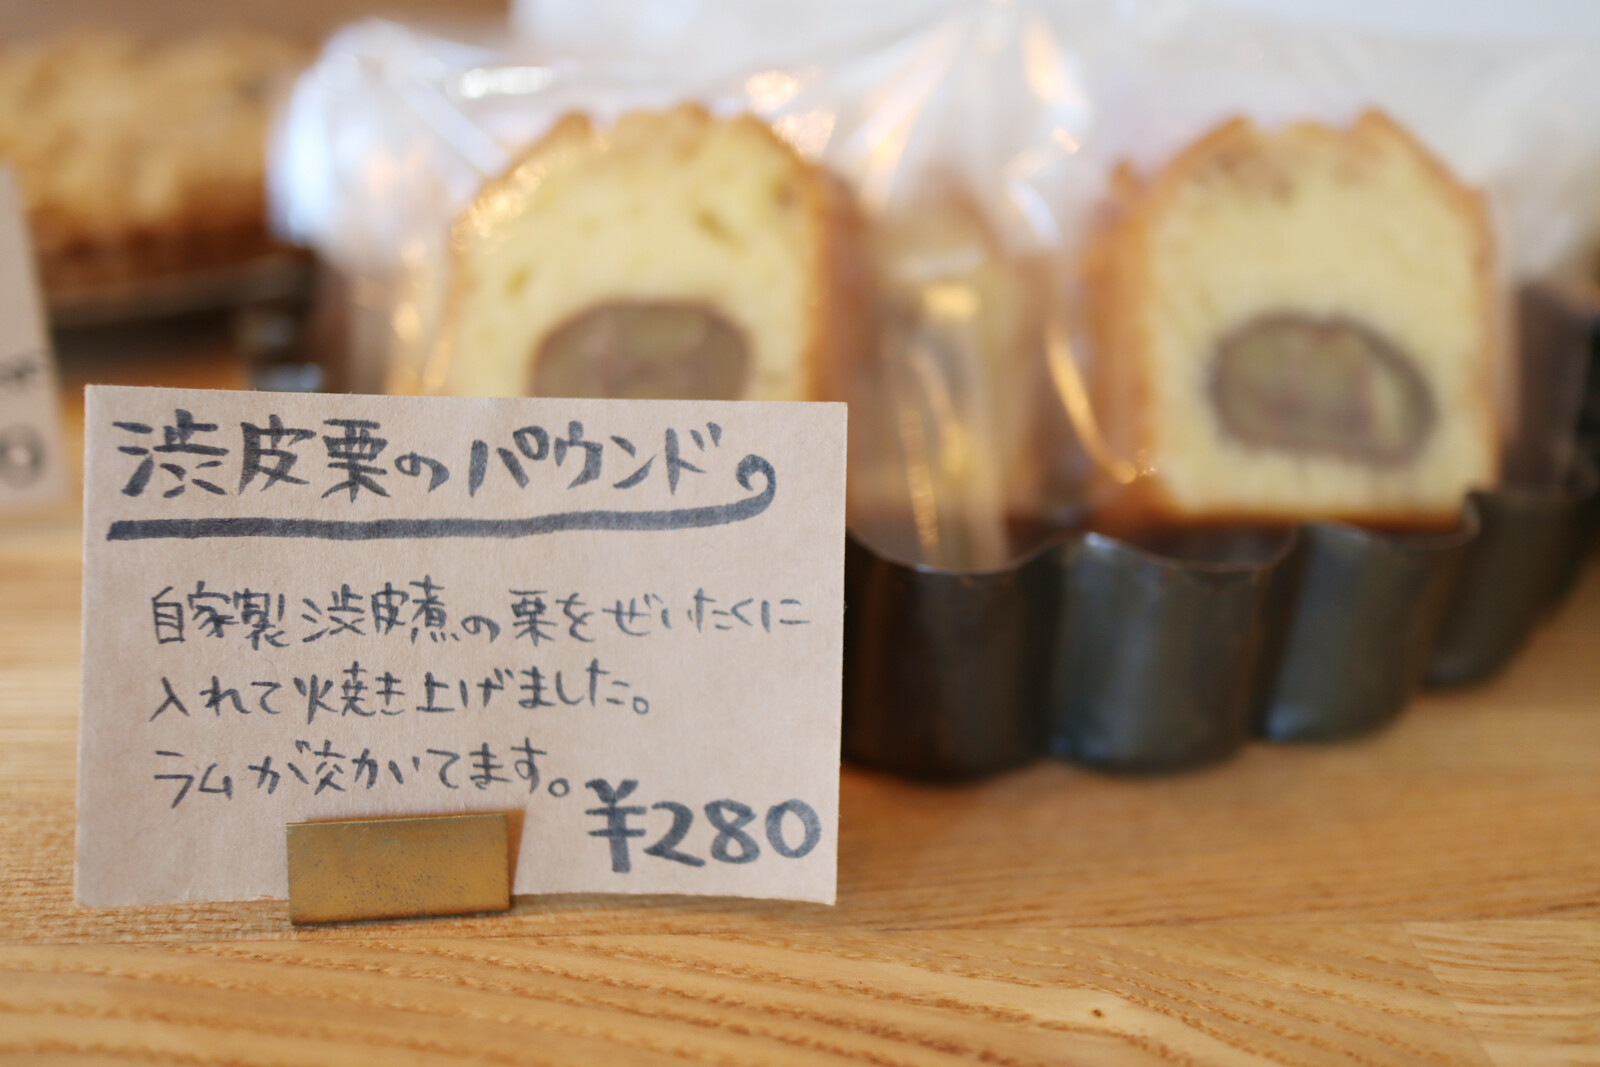 渋皮栗のパウンド
自家製渋皮煮の栗をぜいたくに
入れて焼き上げました。
ラムが効いてます。
¥280